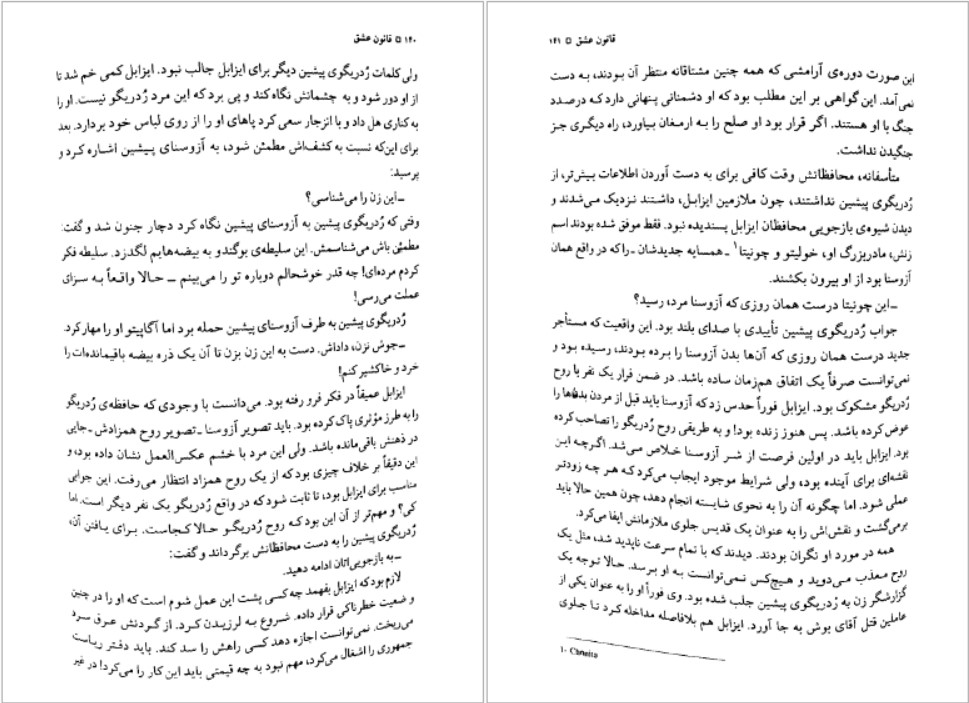 ۱۴۰ □ قانون عشق
ولی کلمات رُدریگوی پیشین دیگر برای ایزابل جالب نبود. ایزابل کمی خم شد تا
از او دور شود و به چشمانش نگاه کند و پی برد که این مرد رُدریگو نیست. او را
به کناری هل داد و با انزجار سعی کرد پاهای او را از روی لباس خود بردارد. بعد
برای این‌که نسبت به کشف‌اش مطمئن شود، به آزوسنای پیشین اشاره کرد و
پرسید:
ـ این زن را می‌شناسی؟
وقتی که رُدریگوی پیشین به آزوسنای پیشین نگاه کرد دچار جنون شد و گفت:
مطمئن باش می‌شناسمش. این سلیطه‌ی بوگندو به بیضه‌هایم لگد زد. سلیطه فکر
کردم مرده‌ای! چه قدر خوشحالم دوباره تو را می‌بینم ـ حالا واقعاً به سزای
عملت می‌رسی!
رُدریگوی پیشین به طرف آزوسنای پیشین حمله برد اما آگاپیتو او را مهار کرد.
ـ جوش نزن، داداش. دست به این زن بزن تا آن یک ذره بیضه باقیمانده‌ات را
خرد و خاکشیر کنم!
ایزابل عمیقاً در فکر فرو رفته بود. می‌دانست با وجودی که حافظه‌ی رُدریگو
را به طرز مؤثری پاک کرده بود. باید تصویر آزوسنا ـ تصویر روح همزادش ـ جایی
در ذهنش باقی‌مانده باشد. ولی این مرد با خشم عکس‌العمل نشان داده بود، و
این دقیقاً بر خلاف چیزی بود که از یک روح همزاد انتظار می‌رفت. این جوابی
مناسب برای ایزابل بود، تا ثابت شود که در واقع رُدریگو یک نفر دیگر است. اما
کی؟ و مهم‌تر از آن این بود که روح رُدریگو حالا کجاست. برای یافتن آن،
رُدریگوی پیشین را به دست محافظانش برگرداند و گفت:
ـ به بازجویی‌اتان ادامه دهید.
لازم بود که ایزابل بفهمد چه کسی پشت این عمل شوم است که او را در چنین
وضعیت خطرناکی قرار داده. شروع به لرزیدن کرد. از گردنش عرق سرد
می‌ریخت. نمی‌توانست اجازه دهد کسی راهش را سد کند. باید دفتر ریاست
جمهوری را اشغال می‌کرد، مهم نبود به چه قیمتی باید این کار را می‌کرد! در غیر
قانون عشق □ ۱۴۱
این صورت دوره‌ی آرامشی که همه چنین مشتاقانه منتظر آن بودند، به دست
نمی‌آمد. این گواهی بر این مطلب بود که او دشمنانی پنهانی دارد که درصدد
جنگ با او هستند. اگر قرار بود او صلح را به ارمغان بیاورد، راه دیگری جز
جنگیدن نداشت.
متأسفانه، محافظانش وقت کافی برای به دست آوردن اطلاعات بیش‌تر، از
رُدریگوی پیشین نداشتند، چون ملازمین ایزابل، داشتند نزدیک می‌شدند و
دیدن شیوه‌ی بازجویی محافظان ایزابل پسندیده نبود. فقط موفق شده بودند اسم
زنش، مادربزرگ او، خولیتو و چونیتا۱ ـ همسایه جدیدشان ـ را که در واقع همان
آزوسنا بود از او بیرون بکشند.
ـ این چونیتا درست همان روزی که آزوسنا مرد، رسید؟
جواب رُدریگوی پیشین تأییدی با صدای بلند بود. این واقعیت که مستأجر
جدید درست همان روزی که آن‌ها بدن آزوسنا را برده بودند، رسیده بود و
نمی‌توانست صرفاً یک اتفاق هم‌زمان ساده باشد. در ضمن فرار یک نفر با روح
رُدریگو مشکوک بود. ایزابل فوراً حدس زد که آزوسنا باید قبل از مردن بدن‌ها را
عوض کرده باشد. پس هنوز زنده بود! و به طریقی روح رُدریگو را تصاحب کرده
بود. ایزابل باید در اولین فرصت از شر آزوسنا خلاص می‌شد. اگرچه این
نقشه‌ای برای آینده بود، ولی شرایط موجود ایجاب می‌کرد که هر چه زودتر
عملی شود. اما چگونه آن را به نحوی شایسته انجام دهد، چون همین حالا باید
برمی‌گشت و نقش‌اش را به عنوان یک قدیس جلوی ملازمانش ایفا می‌کرد.
همه در مورد او نگران بودند. دیدند که با تمام سرعت ناپدید شد، مثل یک
روح معذب می‌دوید و هیچ‌کس نمی‌توانست به او برسد. حالا توجه یک
گزارشگر زن به رُدریگوی پیشین جلب شده بود. وی فوراً او را به عنوان یکی از
عاملین قتل آقای بوش به جا آورد. ایزابل هم بلافاصله مداخله کرد تا جلوی
1- Chonita